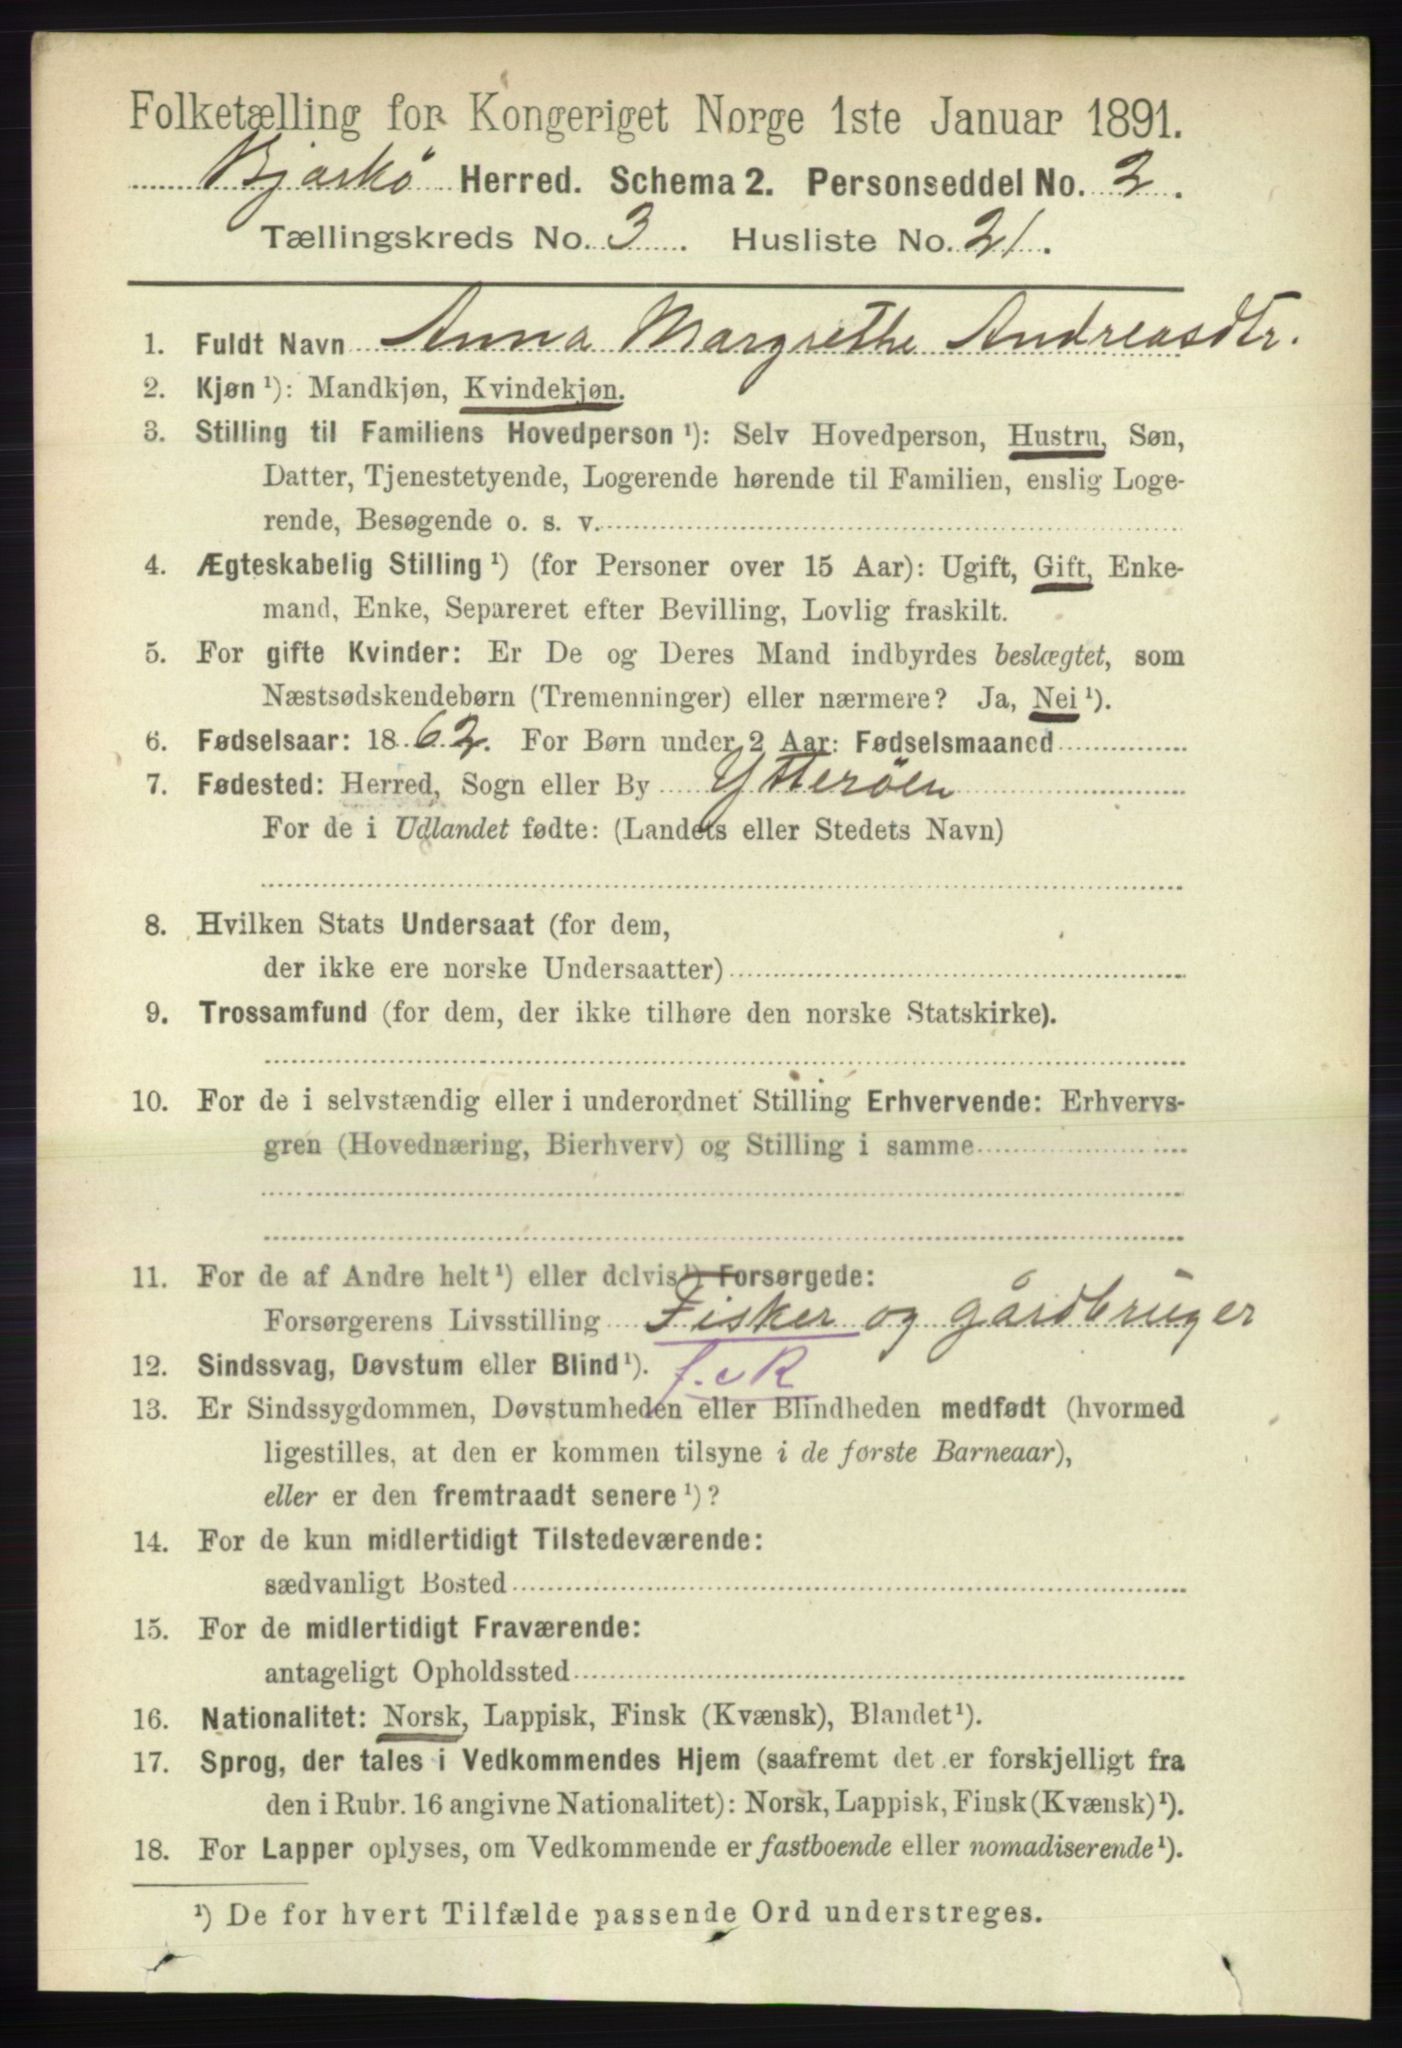 Folketælling for Kongeriget Norge 1ste Januar 1891.
Bjarkö Herred. Schema 2. Personseddel No. 2.
Tællingskreds No. 3. Husliste No. 21.
1. Fuldt Navn Anna Margrethe Andreasdtr.
2. Kjøn ¹): Mandkjøn, Kvindekjøn.
3. Stilling til Familiens Hovedperson ¹): Selv Hovedperson, Hustru, Søn,
Datter, Tjenestetyende, Logerende hørende til Familien, enslig Loge-
rende, Besøgende o. s. v.
4. Ægteskabelig Stilling ¹) (for Personer over 15 Aar): Ugift, Gift, Enke-
mand, Enke, Separeret efter Bevilling, Lovlig fraskilt.
5. For gifte Kvinder: Er De og Deres Mand indbyrdes beslægtet, som
Næstsødskendebørn (Tremenninger) eller nærmere? Ja, Nei ¹).
6. Fødselsaar: 1862. For Børn under 2 Aar: Fødselsmaaned
7. Fødested: Herred, Sogn eller By Ytteröen
For de i Udlandet fødte: (Landets eller Stedets Navn)
8. Hvilken Stats Undersaat (for dem,
der ikke ere norske Undersaatter)
9. Trossamfund (for dem, der ikke tilhøre den norske Statskirke).
10. For de i selvstændig eller i underordnet Stilling Erhvervende: Erhvervs-
gren (Hovednæring, Bierhverv) og Stilling i samme
11. For de af Andre helt ¹) eller delvis ¹) Forsørgede:
Forsørgerens Livsstilling Fisker og gårdbruger
12. Sindssvag, Døvstum eller Blind ¹).
13. Er Sindssygdommen, Døvstumheden eller Blindheden medfødt (hvormed
ligestilles, at den er kommen tilsyne i de første Barneaar),
eller er den fremtraadt senere ¹)?
14. For de kun midlertidigt Tilstedeværende:
sædvanligt Bosted
15. For de midlertidigt Fraværende:
antageligt Opholdssted
16. Nationalitet: Norsk, Lappisk, Finsk (Kvænsk), Blandet ¹).
17. Sprog, der tales i Vedkommendes Hjem (saafremt det er forskjelligt fra
den i Rubr. 16 angivne Nationalitet): Norsk, Lappisk, Finsk (Kvænsk) ¹).
18. For Lapper oplyses, om Vedkommende er fastboende eller nomadiserende ¹).
¹) De for hvert Tilfælde passende Ord understreges.